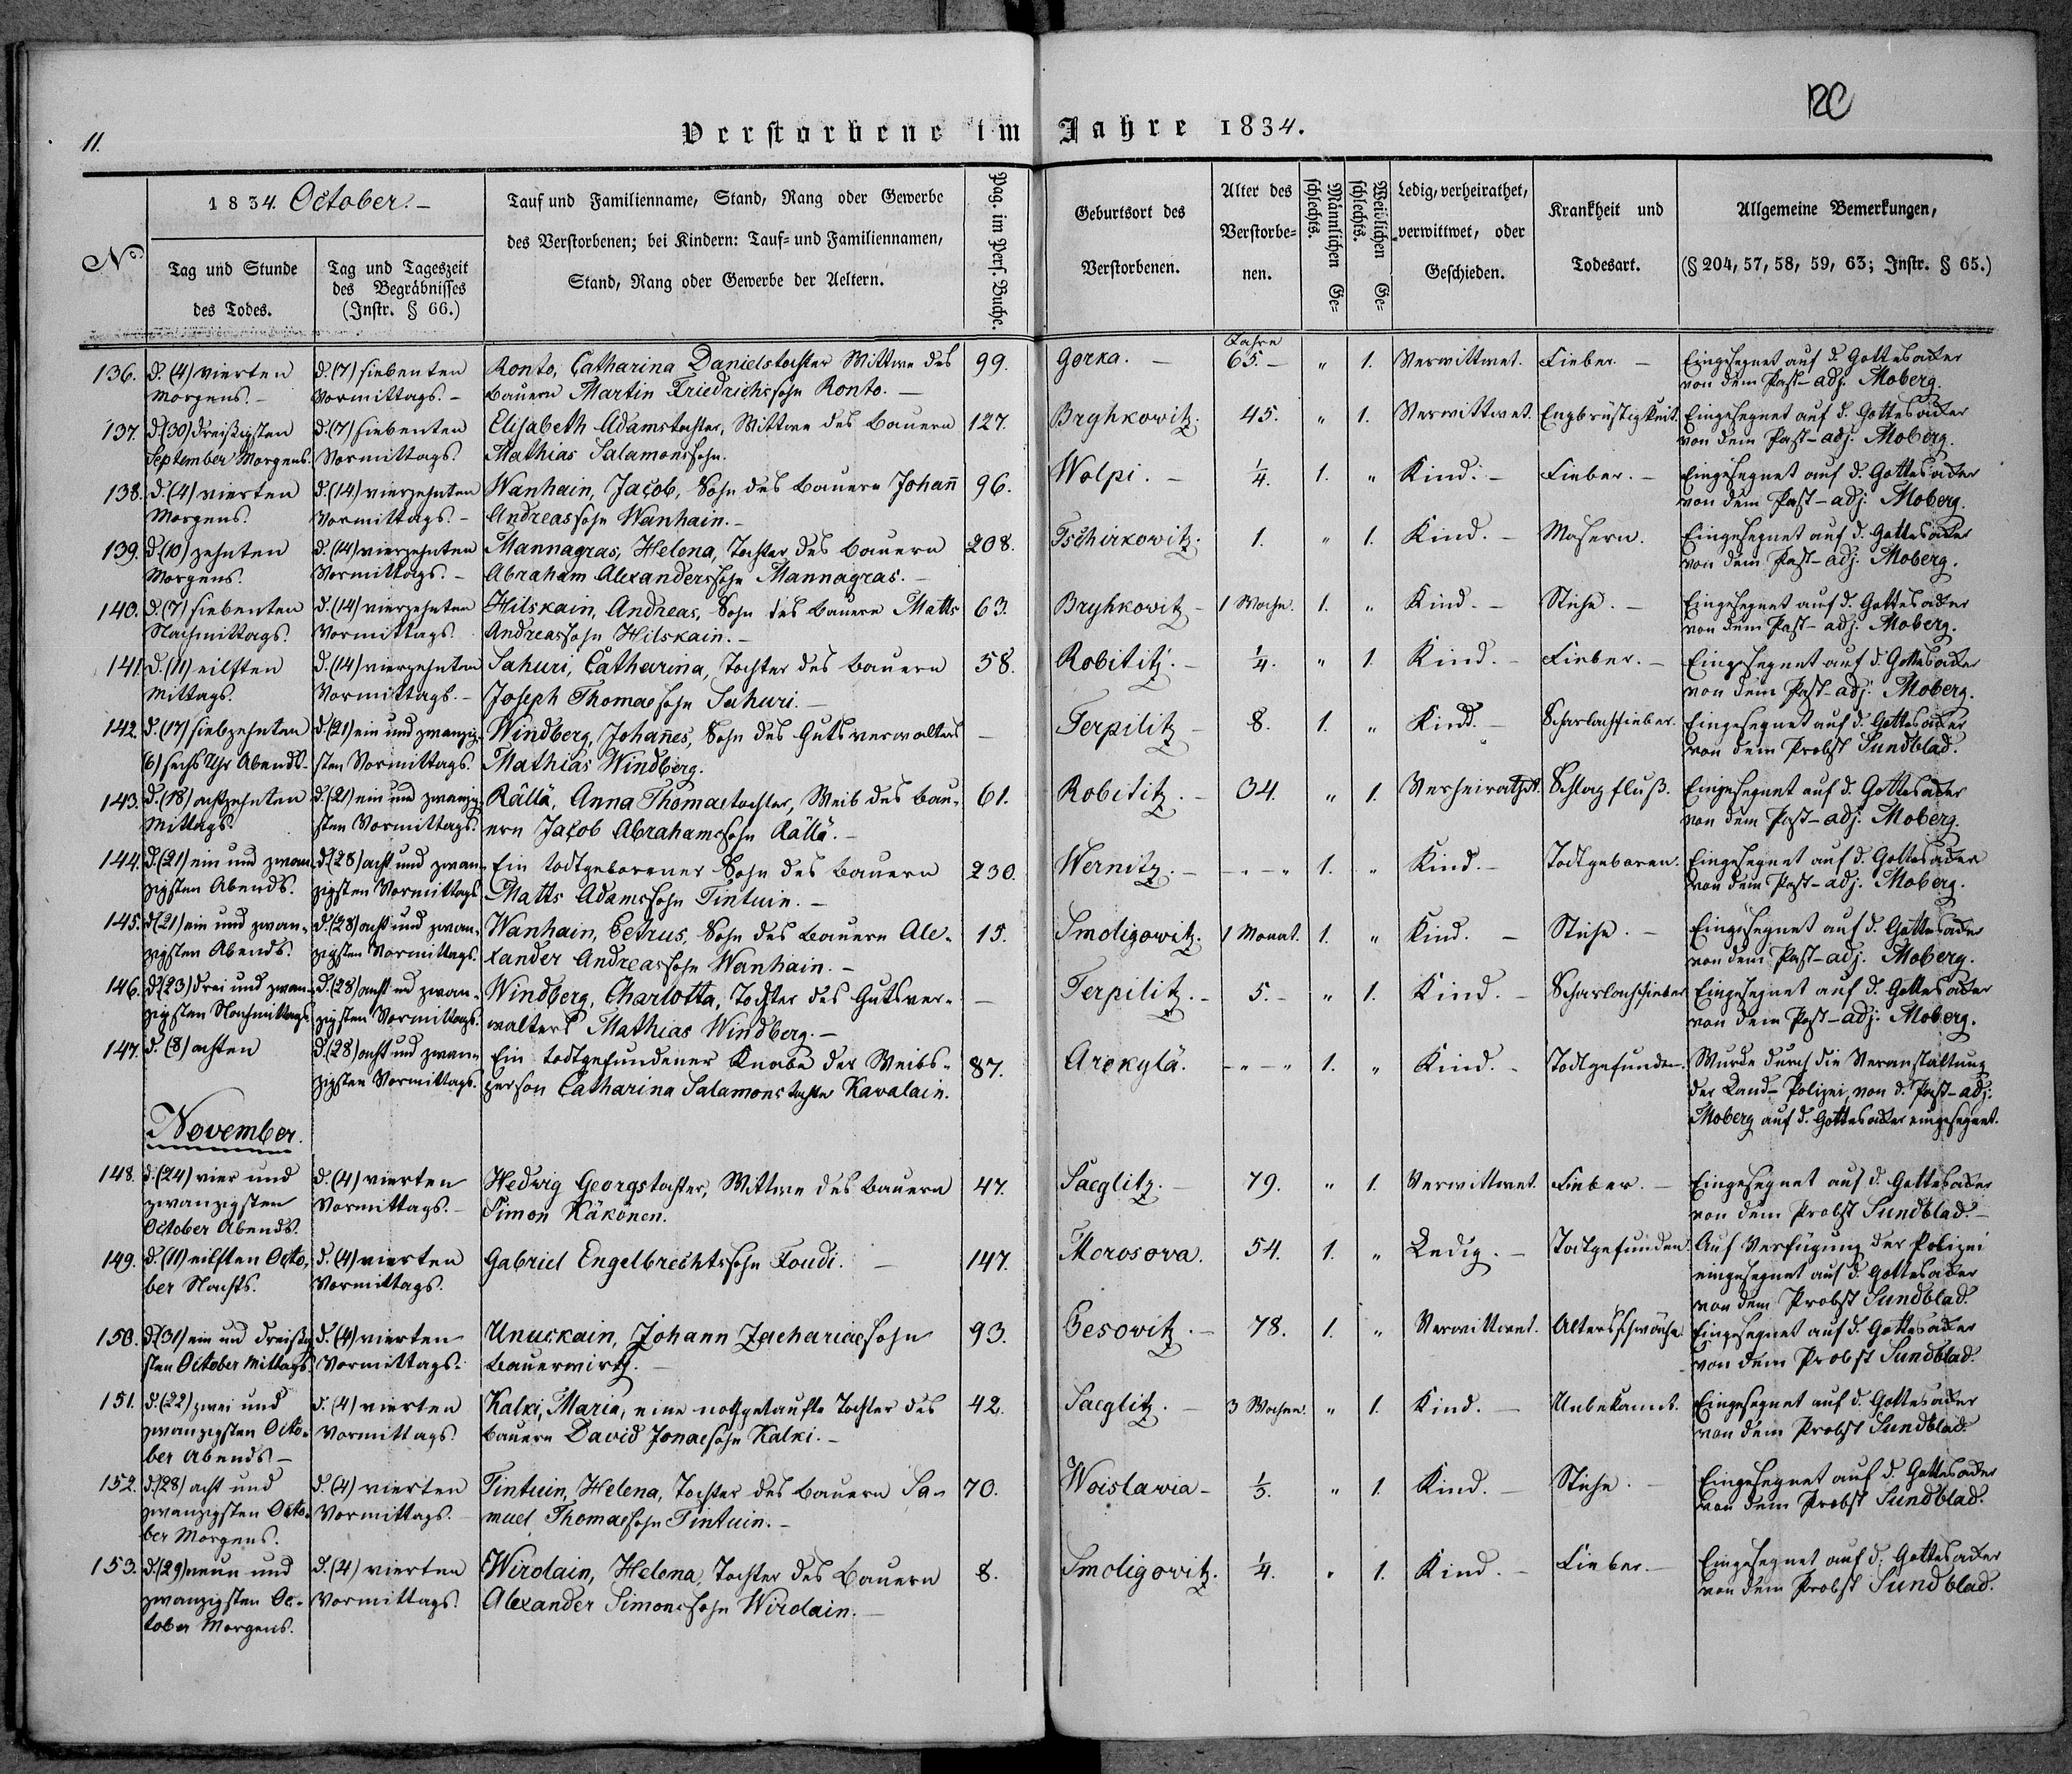 11.
Verstorbene im Jahre 1834.
No
1834. October. –
Tag und Stunde
des Todes.
Tag und Tageszeit
des Begräbnisses
(Instr. § 66.)
Tauf und Familienname, Stand, Rang oder Gewerbe
des Verstorbenen; bei Kindern: Tauf= und Familiennamen,
Stand, Rang oder Gewerbe der Aeltern.
Pag. im Pers. Buche.
Geburtsort des
Verstorbenen.
Alter des
Verstorbe=
nen.
Männlichen Ge=
schlechts.
Weiblichen Ge=
schlechts.
Ledig, verheirathet,
verwittwet, oder
Geschieden.
Krankheit und
Todesart.
Allgemeine Bemerkungen,
(§ 204, 57, 58, 59, 63; Instr. § 65.)
Jahre
136. d. (4) vierten d. (7) siebenten Ronto, Catharina Danielstochter Wittwe des 99. Gorka. – 65. – " 1. Verwittwet. Fieber. – Eingesegnet auf d. Gottesacker
Morgens. – Vormittags. – Bauern Martin Friedrichssohn Ronto. – von dem Past-adj. Moberg.
137. d. (30) dreißigsten d. (7) siebenten Elisabeth Adamstochter, Wittwe des Bauern 127. Bryhkowitz. 45. " 1. Verwittwet. Engbrüstigkeit. Eingesegnet auf d. Gottesacker
September Morgens. Vormittags. Mathias Salamonssohn. von dem Past-adj. Moberg.
138. d. (4) vierten d. (14) vierzehnten Wanhain, Jacob, Sohn des Bauern Johañ 96. Wolpi. – 1/4. 1. " Kind. – Fieber. – Eingesegnet auf d. Gottesacker
Morgens. Vormittags. – Andreassohn Wanhain. – von dem Past-adj. Moberg.
139. d. (10) zehnten d. (14) vierzehnten Mannagras, Helena, Tochter des Bauern 208. Tschirkowitz. 1. " 1. Kind. – Masern. Eingesegnet auf d. Gottesacker
Morgens. Vormittags. – Abraham Alexanderssohn Mannagras. – von dem Past-adj. Moberg.
140. d. (7) siebenten d. (14) vierzehnten Hilskain, Andreas, Sohn des Bauern Matts 63. Bryhkowitz – 1 Woche. 1. " Kind. – Stiche. – Eingesegnet auf d. Gottesacker
Nachmittags. Vormittags. Andreassohn Hilskain. – von dem Past-adj. Moberg.
141. d. (11) eilften d. (14) vierzehnten Sahuri, Catharina, Tochter des Bauern 58. Robititz. – 1/4. " 1. Kind. – Fieber. – Eingesegnet auf d. Gottesacker
Mittags. Vormittags. – Joseph Thomaesohn Sahuri. – von dem Past-adj. Moberg.
142. d. (17) siebzehnten d. (21) ein und zwanzig- Windberg, Johañes, Sohn des Gutsverwalters – Terpilitz – 8. 1. " Kind. – Scharlachfieber. Eingesegnet auf d. Gottesacker
(6) sechs Uhr Abends. sten Vormittags. Mathias Windberg. von dem Probst Sundblad.
143. d. (18) achtzehnten d. (21) ein und zwanzig- Rällä, Anna Thomaetochter, Weib des Bau- 61. Robititz. – 34. " 1. Verheirathet. Schlagfluß. Eingesegnet auf d. Gottesacker
Mittags. sten Vormittags. ern Jacob Abrahamssohn Rällä. – von dem Past-adj. Moberg.
144. d. (21) ein und zwan- d. (28) acht und zwan- Ein todtgeborener Sohn des Bauern 230. Wernitz. – – " – " 1. " Kind. – Todtgeboren. Eingesegnet auf d. Gottesacker
zigsten Abends. zigsten Vormittags Matts Adamssohn Tintuin. – von dem Past-adj. Moberg.
145. d. (21) ein und zwan- d. (28) acht und zwan- Wanhain, Petrus, Sohn des Bauern Ale- 15. Smoligowitz. 1 Monat. 1. " Kind. – Stiche. – Eingesegnet auf d. Gottesacker
zigsten Abends. zigsten Vormittags. xander Andreassohn Wanhain. – von dem Past-adj. Moberg.
146. d. (23) drei und zwan- d. (28) acht und zwan- Windberg, Charlotta, Tochter des Gutsver- – Terpilitz. – 5. – " 1. Kind. – Scharlachfieber Eingesegnet auf d. Gottesacker
zigsten Nachmittags zigsten Vormittags. walters Mathias Windberg. – von dem Past-adj. Moberg.
147. d. (8) achten d. (28) acht und zwan- Ein todtgefundener Knabe der Weibs- 87. Arokylä. – " – " 1. " Kind. – Todtgefunden. Wurde durch die Veranstaltung
zigsten Vormittags. person Catharina Salamonstochter Kavalain. der Land-Polizei von d. Past-adj.
Moberg auf d. Gottesacker eingesegnet.
November.
148. d. (24) vier und d. (4) vierten Hedwig Georgstochter, Wittwe des Bauern 47. Saeglitz. – 79. " 1. Verwittwet. Fieber. – Eingesegnet auf d. Gottesacker
zwanzigsten Vormittags. – Simon Käkönen. von dem Probst Sundblad. –
October Abends.
149. d. (11) eilften Octo- d. (4) vierten Gabriel Engelbrechtssohn Foudi. – 147. Morosova. 54. 1. " Ledig. – Todtgefunden. Auf Verfügung der Polizei
ber Nachts. Vormittags. eingesegnet auf d. Gottesacker
von dem Probst Sundblad.
150. d. (31) ein und dreißig- d. (4) vierten Unuskain, Johann Zachariaesohn 93. Besovitz. – 78. 1. " Verwittwet. Altersschwäche. Eingesegnet auf d. Gottesacker
sten October Mittags. Vormittags. Bauerwirth. – von dem Probst Sundblad.
151. d. (22) zwei und d. (4) vierten Kalki, Maria, eine nothgetaufte Tochter des 42. Saeglitz. – 3 Wochen. " 1. Kind. – Unbekannt. Eingesegnet auf d. Gottesacker
zwanzigsten Octo- Vormittags. Bauern David Jonaesohn Kalki. – von dem Probst Sundblad.
ber Abends –
152. d. (28) acht und d. (4) vierten Tintuin, Helena, Tochter des Bauern Sa- 70. Woislawia – 1/5. " 1. Kind. – Stiche. – Eingesegnet auf d. Gottesacker
zwanzigsten Octo- Vormittags. – muel Thomaesohn Tintuin. – von dem Probst Sundblad.
ber Morgens.
153. d. (29) neun und d. (4) vierten Wirolain, Helena, Tochter des Bauern 8. Smoligowitz. 1/4. " 1. Kind. – Fieber. – Eingesegnet auf d. Gottesacker
zwanzigsten Oc- Vormittags. Alexander Simonssohn Wirolain. – von dem Probst Sundblad.
tober Morgens.